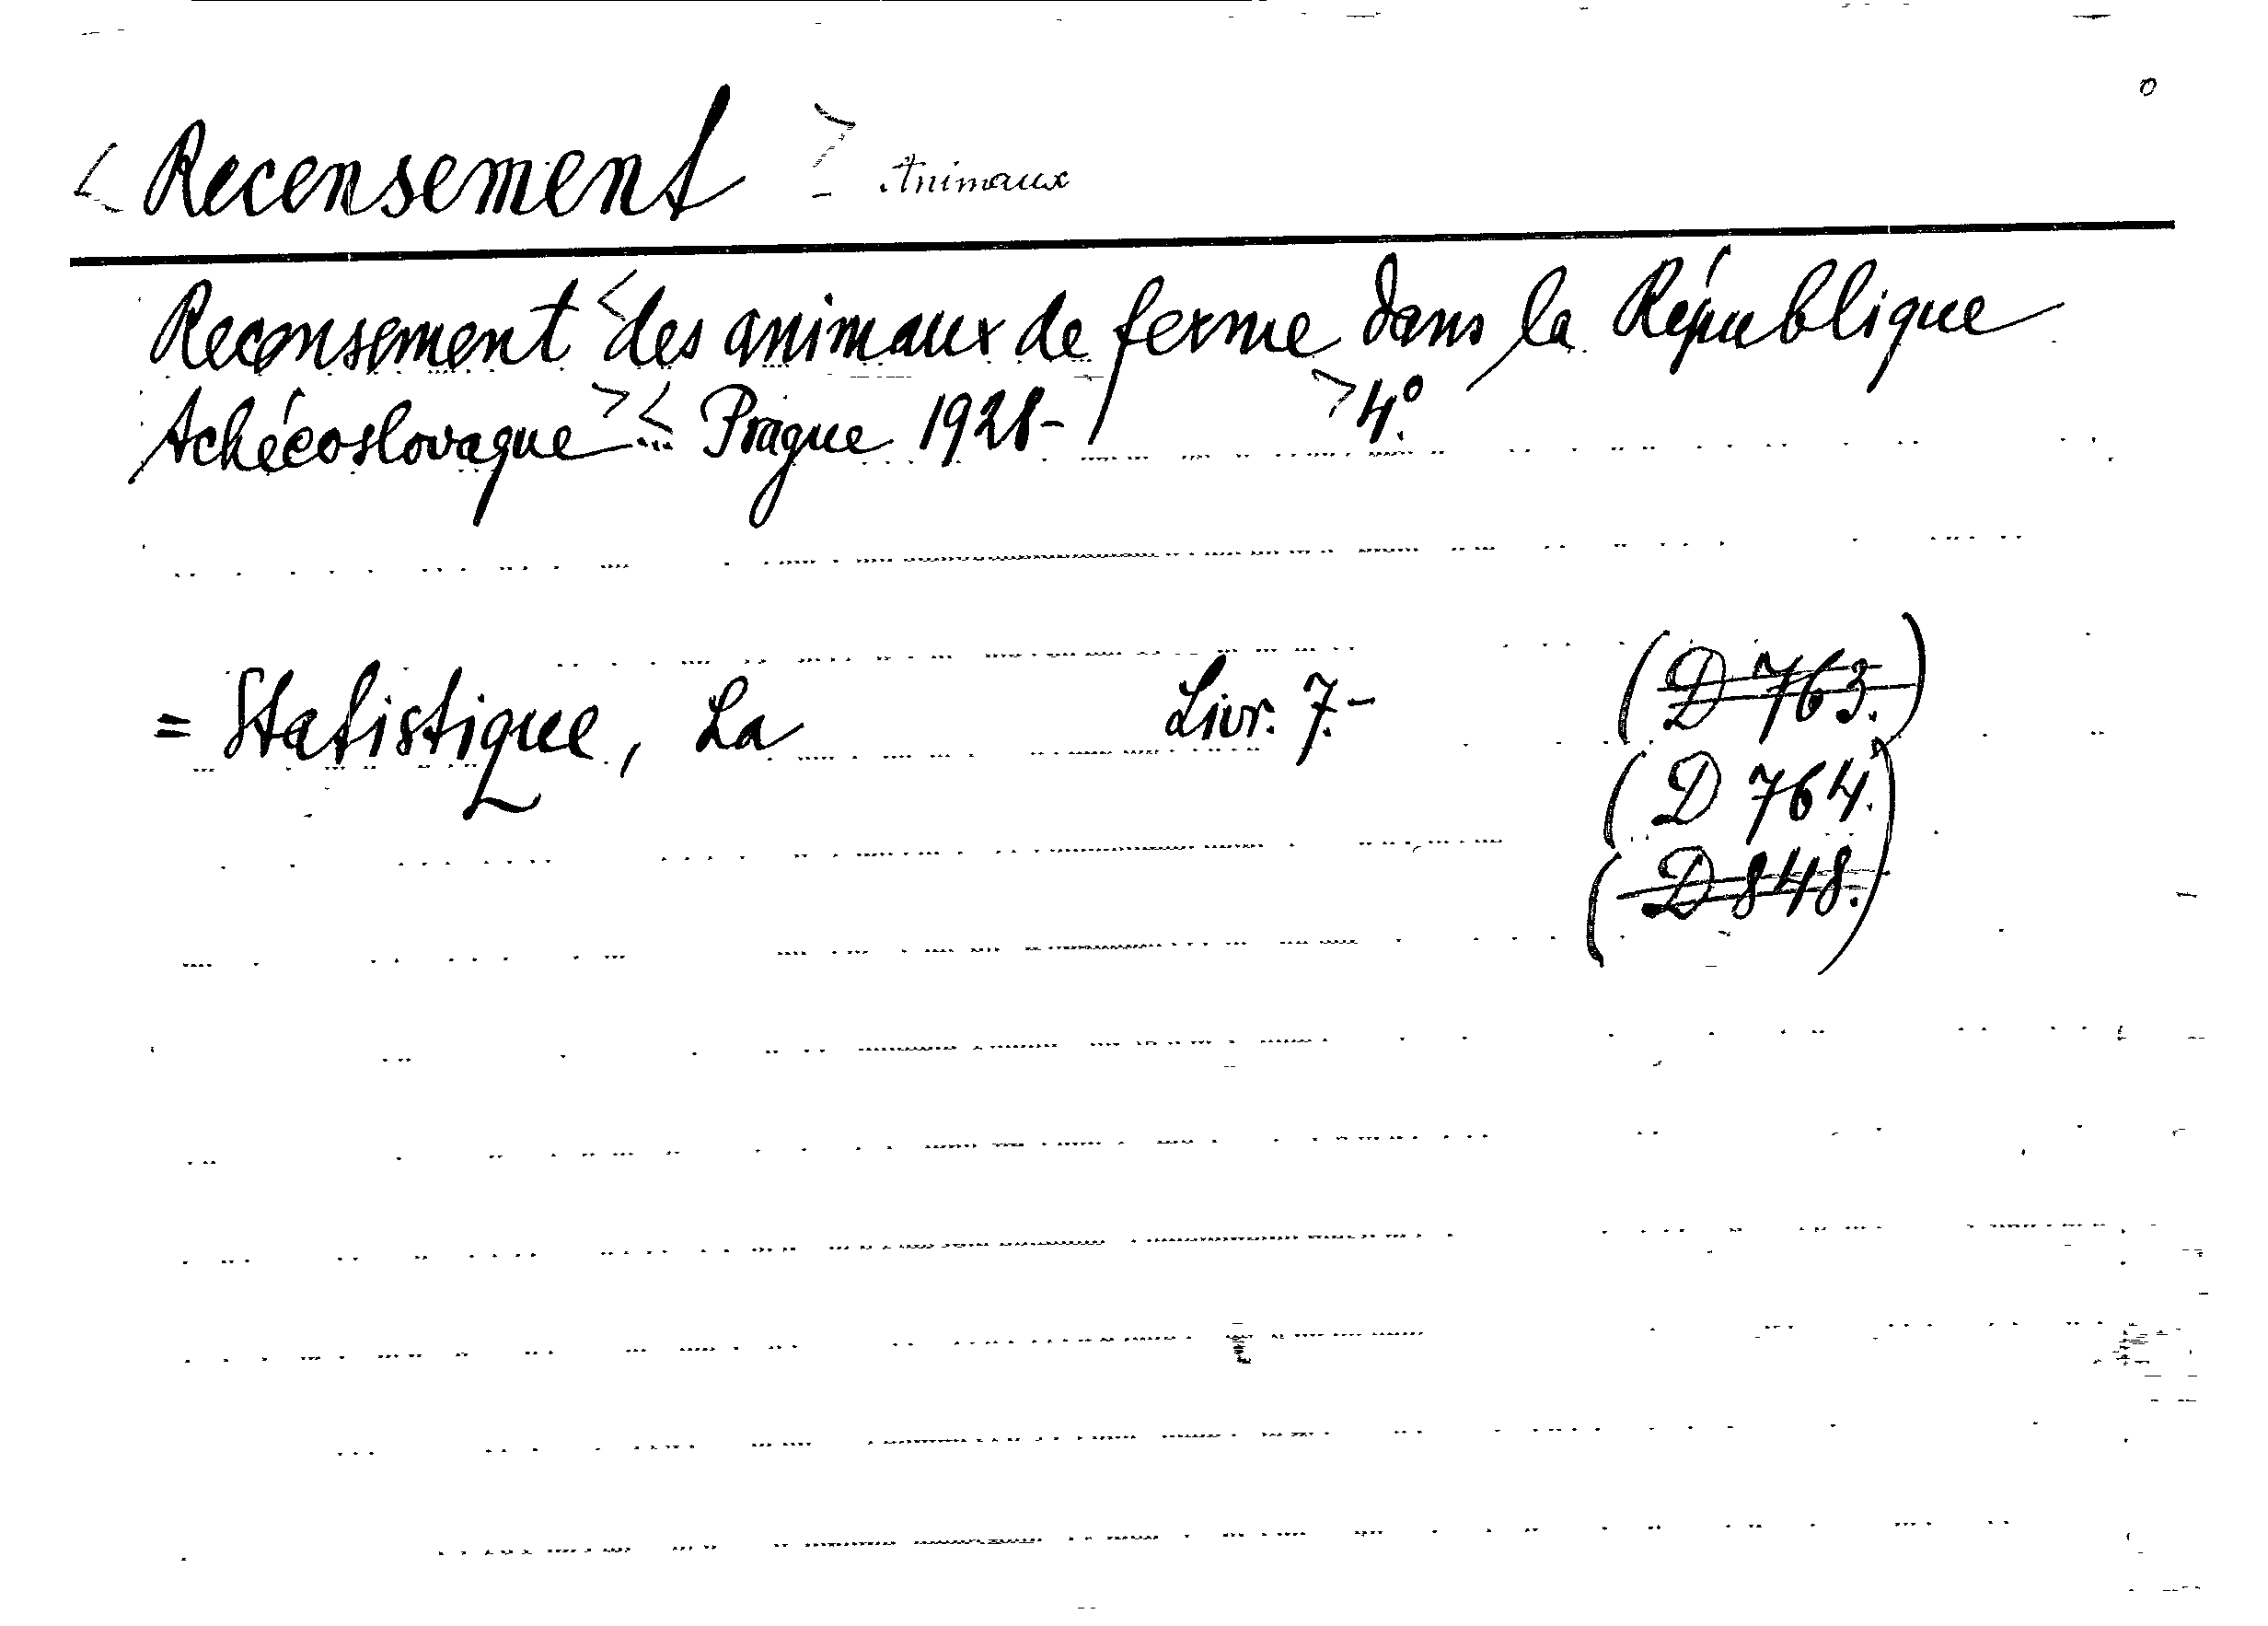 < Recensement > Animaux
Recensement < des animaux de ferme dans la République
tchécoslovaque > < Prague 1928- > 4°.
= Statistique, La Livr. 7.- (D 763.)
(D 764.)
(D 848.)